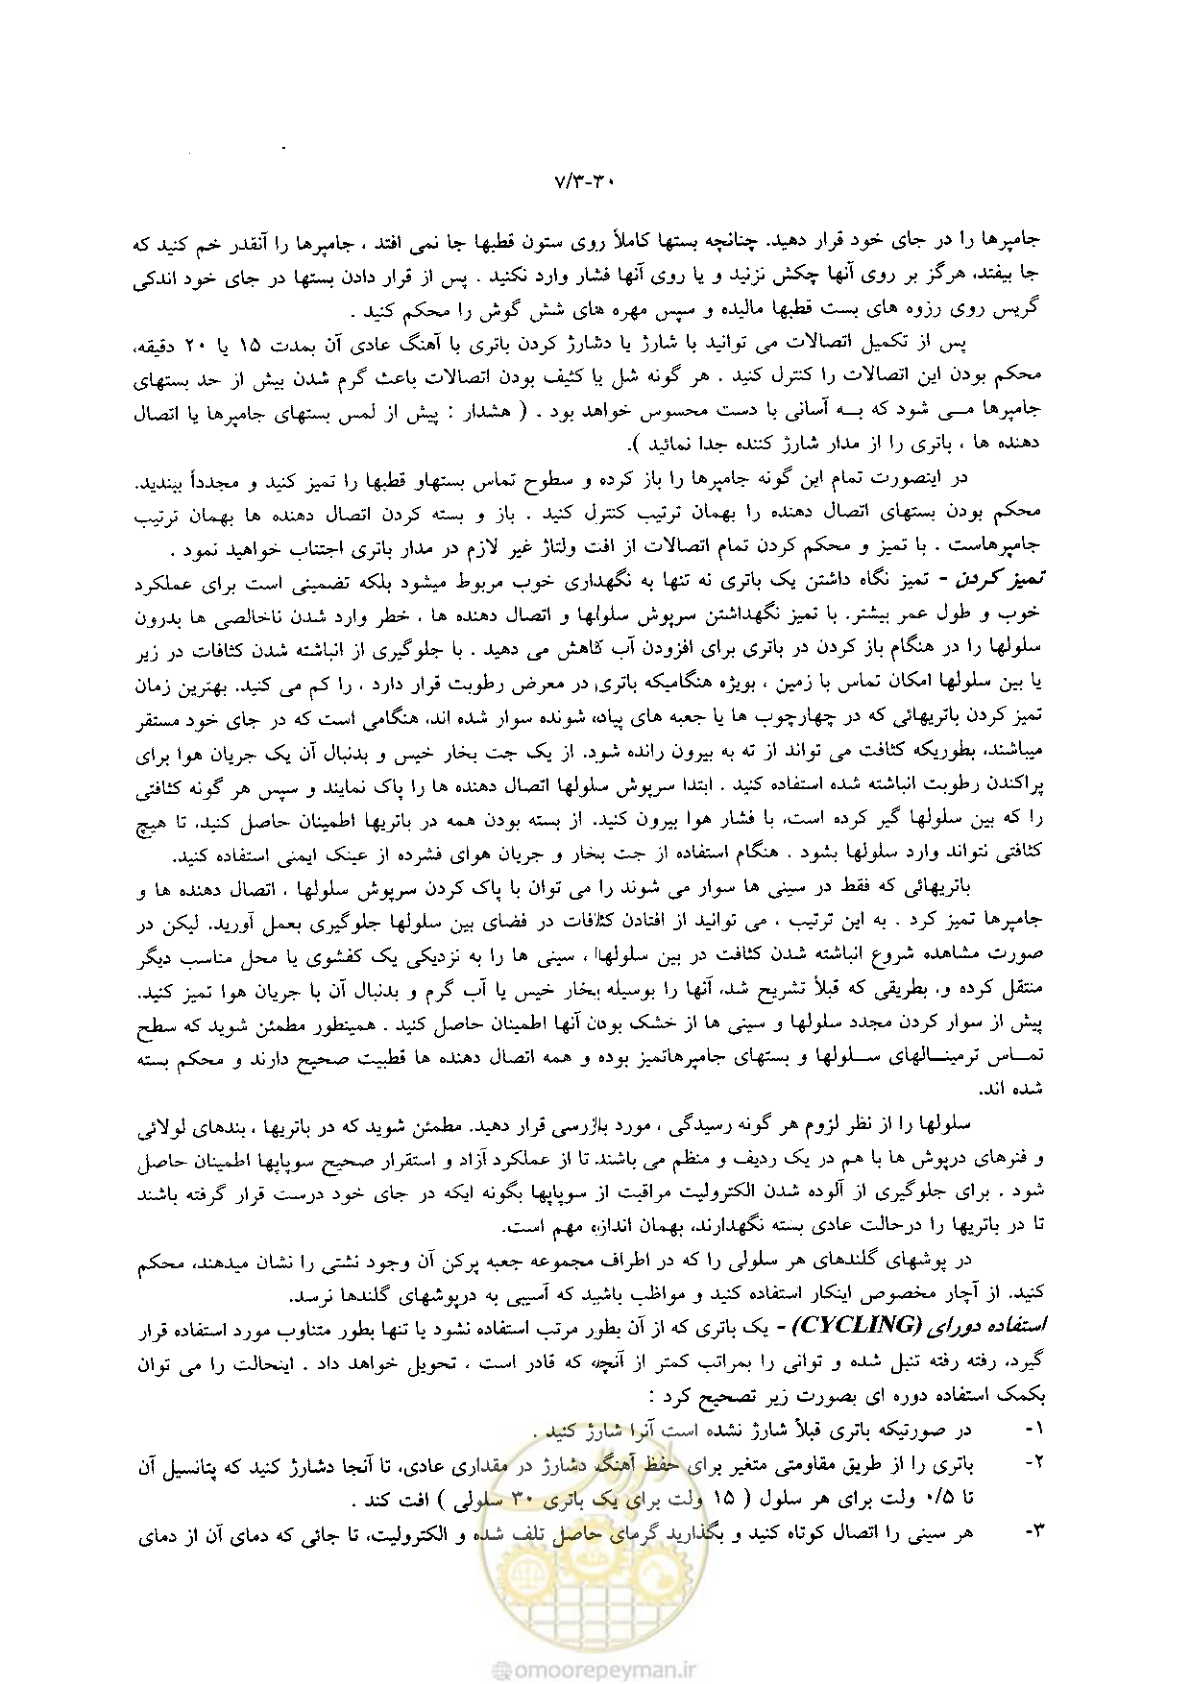 ۷/۳-۳۰
جامپرها را در جای خود قرار دهید. چنانچه بستها کاملاً روی ستون قطبها جا نمی افتد ، جامپرها را آنقدر خم کنید که
جا بیفتد، هرگز بر روی آنها چکش نزنید و یا روی آنها فشار وارد نکنید . پس از قرار دادن بستها در جای خود اندکی
گریس روی رزوه های بست قطبها مالیده و سپس مهره های شش گوش را محکم کنید .
پس از تکمیل اتصالات می توانید با شارژ یا دشارژ کردن باتری با آهنگ عادی آن بمدت ۱۵ یا ۲۰ دقیقه،
محکم بودن این اتصالات را کنترل کنید . هر گونه شل یا کثیف بودن اتصالات باعث گرم شدن بیش از حد بستهای
جامپرها مــی شود که بــه آسانی با دست محسوس خواهد بود . ( هشدار : پیش از لمس بستهای جامپرها یا اتصال
دهنده ها ، باتری را از مدار شارژ کننده جدا نمائید ).
در اینصورت تمام این گونه جامپرها را باز کرده و سطوح تماس بستهاو قطبها را تمیز کنید و مجدداً ببندید.
محکم بودن بستهای اتصال دهنده را بهمان ترتیب کنترل کنید . باز و بسته کردن اتصال دهنده ها بهمان ترتیب
جامپرهاست . با تمیز و محکم کردن تمام اتصالات از افت ولتاژ غیر لازم در مدار باتری اجتناب خواهید نمود .
تمیز کردن - تمیز نگاه داشتن یک باتری نه تنها به نگهداری خوب مربوط میشود بلکه تضمینی است برای عملکرد
خوب و طول عمر بیشتر. با تمیز نگهداشتن سرپوش سلولها و اتصال دهنده ها ، خطر وارد شدن ناخالصی ها بدرون
سلولها را در هنگام باز کردن در باتری برای افزودن آب کاهش می دهید . با جلوگیری از انباشته شدن کثافات در زیر
یا بین سلولها امکان تماس با زمین ، بویژه هنگامیکه باتری در معرض رطوبت قرار دارد ، را کم می کنید. بهترین زمان
تمیز کردن باتریهائی که در چهارچوب ها یا جعبه های پیاده شونده سوار شده اند، هنگامی است که در جای خود مستقر
میباشند، بطوریکه کثافت می تواند از ته به بیرون رانده شود. از یک جت بخار خیس و بدنبال آن یک جریان هوا برای
پراکندن رطوبت انباشته شده استفاده کنید . ابتدا سرپوش سلولها اتصال دهنده ها را پاک نمایند و سپس هر گونه کثافتی
را که بین سلولها گیر کرده است، با فشار هوا بیرون کنید. از بسته بودن همه در باتریها اطمینان حاصل کنید، تا هیچ
کثافتی نتواند وارد سلولها بشود . هنگام استفاده از جت بخار و جریان هوای فشرده از عینک ایمنی استفاده کنید.
باتریهائی که فقط در سینی ها سوار می شوند را می توان با پاک کردن سرپوش سلولها ، اتصال دهنده ها و
جامپرها تمیز کرد . به این ترتیب ، می توانید از افتادن کثافات در فضای بین سلولها جلوگیری بعمل آورید. لیکن در
صورت مشاهده شروع انباشته شدن کثافت در بین سلولها ، سینی ها را به نزدیکی یک کفشوی یا محل مناسب دیگر
منتقل کرده و، بطریقی که قبلاً تشریح شد، آنها را بوسیله بخار خیس یا آب گرم و بدنبال آن با جریان هوا تمیز کنید.
پیش از سوار کردن مجدد سلولها و سینی ها از خشک بودن آنها اطمینان حاصل کنید . همینطور مطمئن شوید که سطح
تمــاس ترمینــالهای ســلولها و بستهای جامپرهاتمیز بوده و همه اتصال دهنده ها قطبیت صحیح دارند و محکم بسته
شده اند.
سلولها را از نظر لزوم هر گونه رسیدگی ، مورد بازرسی قرار دهید. مطمئن شوید که در باتریها ، بندهای لولائی
و فنرهای درپوش ها با هم در یک ردیف و منظم می باشند، تا از عملکرد آزاد و استقرار صحیح سوپاپها اطمینان حاصل
شود . برای جلوگیری از آلوده شدن الکترولیت مراقبت از سوپاپها بگونه ایکه در جای خود درست قرار گرفته باشند
تا در باتریها را درحالت عادی بسته نگهدارند، بهمان اندازه مهم است.
در پوشهای گلندهای هر سلولی را که در اطراف مجموعه جعبه پرکن آن وجود نشتی را نشان میدهند، محکم
کنید. از آچار مخصوص اینکار استفاده کنید و مواظب باشید که آسیبی به درپوشهای گلندها نرسد.
استفاده دورای (CYCLING) - یک باتری که از آن بطور مرتب استفاده نشود یا تنها بطور متناوب مورد استفاده قرار
گیرد، رفته رفته تنبل شده و توانی را بمراتب کمتر از آنچه که قادر است ، تحویل خواهد داد . اینحالت را می توان
بکمک استفاده دوره ای بصورت زیر تصحیح کرد :
۱- در صورتیکه باتری قبلاً شارژ نشده است آنرا شارژ کنید .
۲- باتری را از طریق مقاومتی متغیر برای حفظ آهنگ دشارژ در مقداری عادی، تا آنجا دشارژ کنید که پتانسیل آن
تا ۰/۵ ولت برای هر سلول ( ۱۵ ولت برای یک باتری ۳۰ سلولی ) افت کند .
۳- هر سینی را اتصال کوتاه کنید و بگذارید گرمای حاصل تلف شده و الکترولیت، تا جائی که دمای آن از دمای
@omoorepeyman.ir